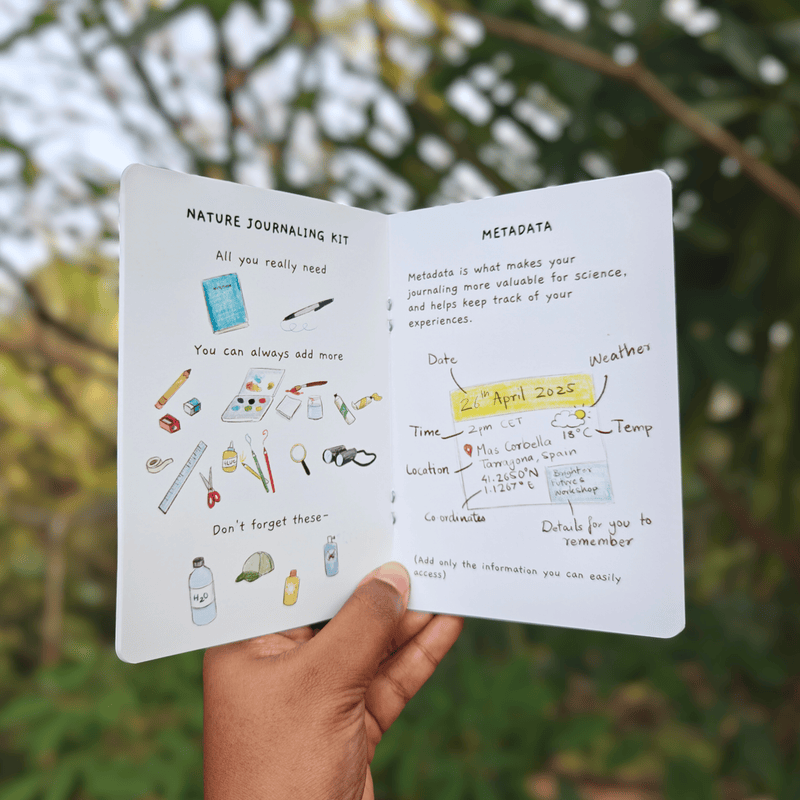 NATURE JOURNALING KIT
All you really need
You can always add more
GLUE
Don't forget these-
H2O
METADATA
Metadata is what makes your
journaling more valuable for science,
and helps keep track of your
experiences.
Date
Weather
26th April 2025
Time
2pm CET
18°C
Temp
Location
Mas Corbella
Tarragona, Spain
41.2650°N
1.1267°E
Brighter
Futures
Workshop
Co-ordinates
Details for you to
remember
(Add only the information you can easily
access)